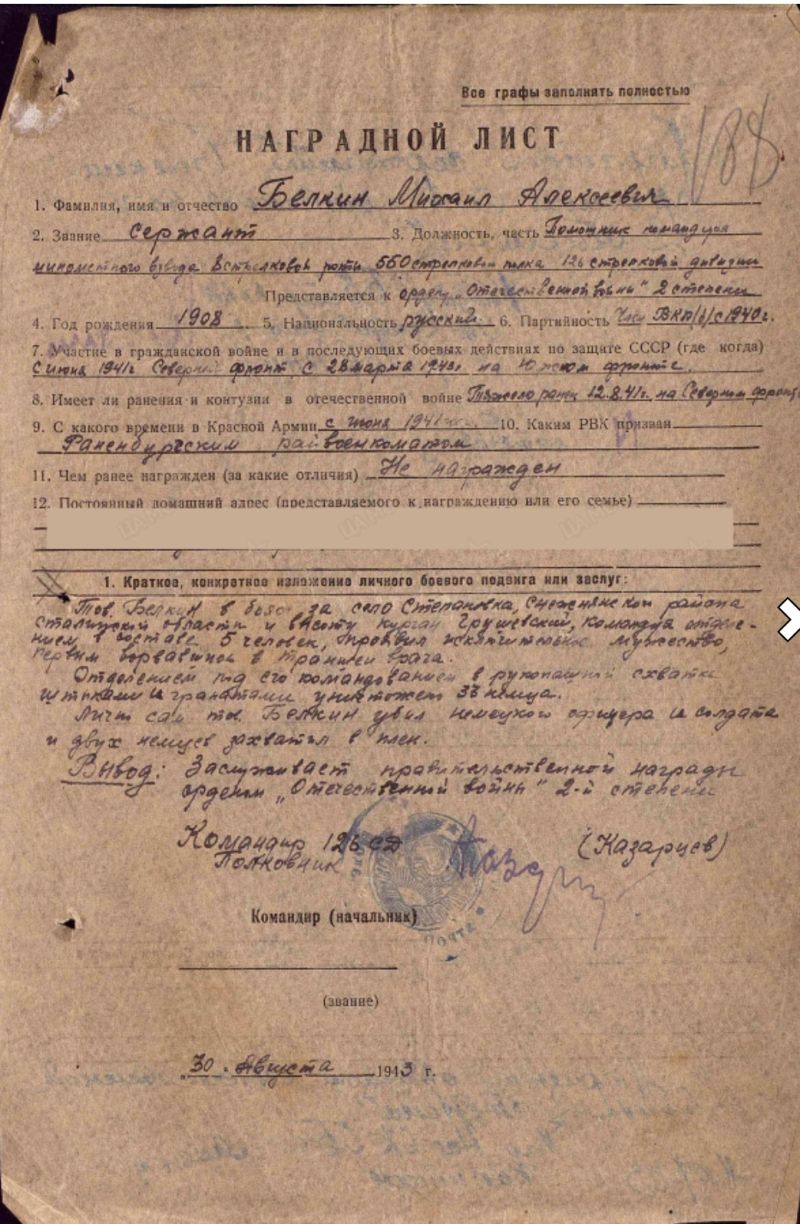 Все графы заполнять полностью
188
НАГРАДНОЙ ЛИСТ
1. Фамилия, имя и отчество Белкин Михаил Алексеевич
2. Звание сержант 3. Должность, часть Помощник командира
минометного взвода стрелковой роты 550 стрелкового полка 126 стрелковой дивизии
Представляется к ордену „Отечественной войны" 2 степени
4. Год рождения 1908 5. Национальность русский 6. Партийность член ВКП/б/ с 1940 г.
7. Участие в гражданской войне и в последующих боевых действиях по защите СССР (где когда)
С июня 1941г Северный фронт, с 28 марта 1943г на Южном фронте.
8. Имеет ли ранения и контузии в отечественной войне Тяжело ранен 12.8.41г. на Северном фронте
9. С какого времени в Красной Армии с июня 1941 10. Каким РВК призван
Раненбургским райвоенкоматом
11. Чем ранее награжден (за какие отличия) Не награжден
12. Постоянный домашний адрес (представляемого к награждению или его семье)
1. Краткое, конкретное изложение личного боевого подвига или заслуг:
Тов. Белкин в боях за село Степановка, Снежнянского района
Сталинской области и высоту курган Грушевский, командуя отделе-
нием, в составе 5 человек, проявил исключительное мужество,
первым ворвавшись в траншеи врага.
Отделением под его командованием в рукопашной схватке
штыками и гранатами уничтожено немца.
Лично сам тов. Белкин убил немецкого офицера и солдата
и двух немцев захватил в плен.
Вывод: Заслуживает правительственной награды
орденом „Отечественной войны" 2-й степени
Командир 126 СД
Полковник (Казарцев)
Командир (начальник)
(звание)
„30" Августа 1943 г.